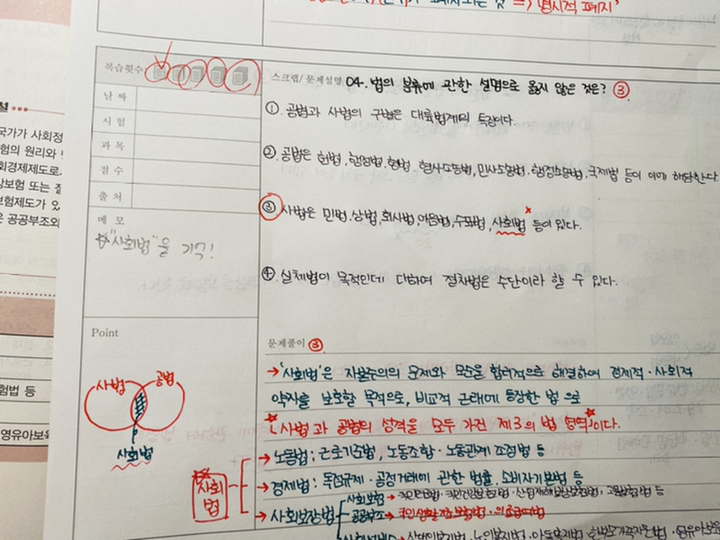 폐지되는 것 => '명시적 폐지'
설
국가가 사회정
험의 원리와
회경제제도로
보험 또는 질
험제도가 있
은 공공부조와
험법 등
영유아보육
복습횟수
날 짜
시 험
과 목
점 수
출 처
메 모
☆"사회법"을 기억!
Point
사법 공법
사회법
스크랩/문제설명 04. 법의 분류에 관한 설명으로 옳지 않은 것은? ③
① 공법과 사법의 구별은 대륙법계의 특징이다.
② 공법은 헌법, 행정법, 형법, 형사소송법, 민사소송법, 행정소송법, 국제법 등이 이에 해당한다
③ 사법은 민법, 상법, 회사법, 어음법, 수표법, 사회법 등이 있다.
④ 실체법이 목적인데 대하여 절차법은 수단이라 할 수 있다.
문제풀이 ③
→ '사회법'은 자본주의의 문제와 모순을 합리적으로 해결하여 경제적·사회적
약자를 보호할 목적으로, 비교적 근래에 등장한 법으로
「사법과 공법의 성격을 모두 가진 제3의 법 영역」이다.
사회법
→ 노동법: 근로기준법, 노동조합·노동관계조정법 등
→ 경제법: 독점규제·공정거래에 관한 법률, 소비자기본법 등
→ 사회보장법
사회보험 → 국민연금법·국민건강보험법·산업재해보상보험법·고용보험법 등
공공부조 → 국민생활기초보장법·의료급여법
사회서비스 → 노인복지법·아동복지법·한부모가족지원법·영유아보